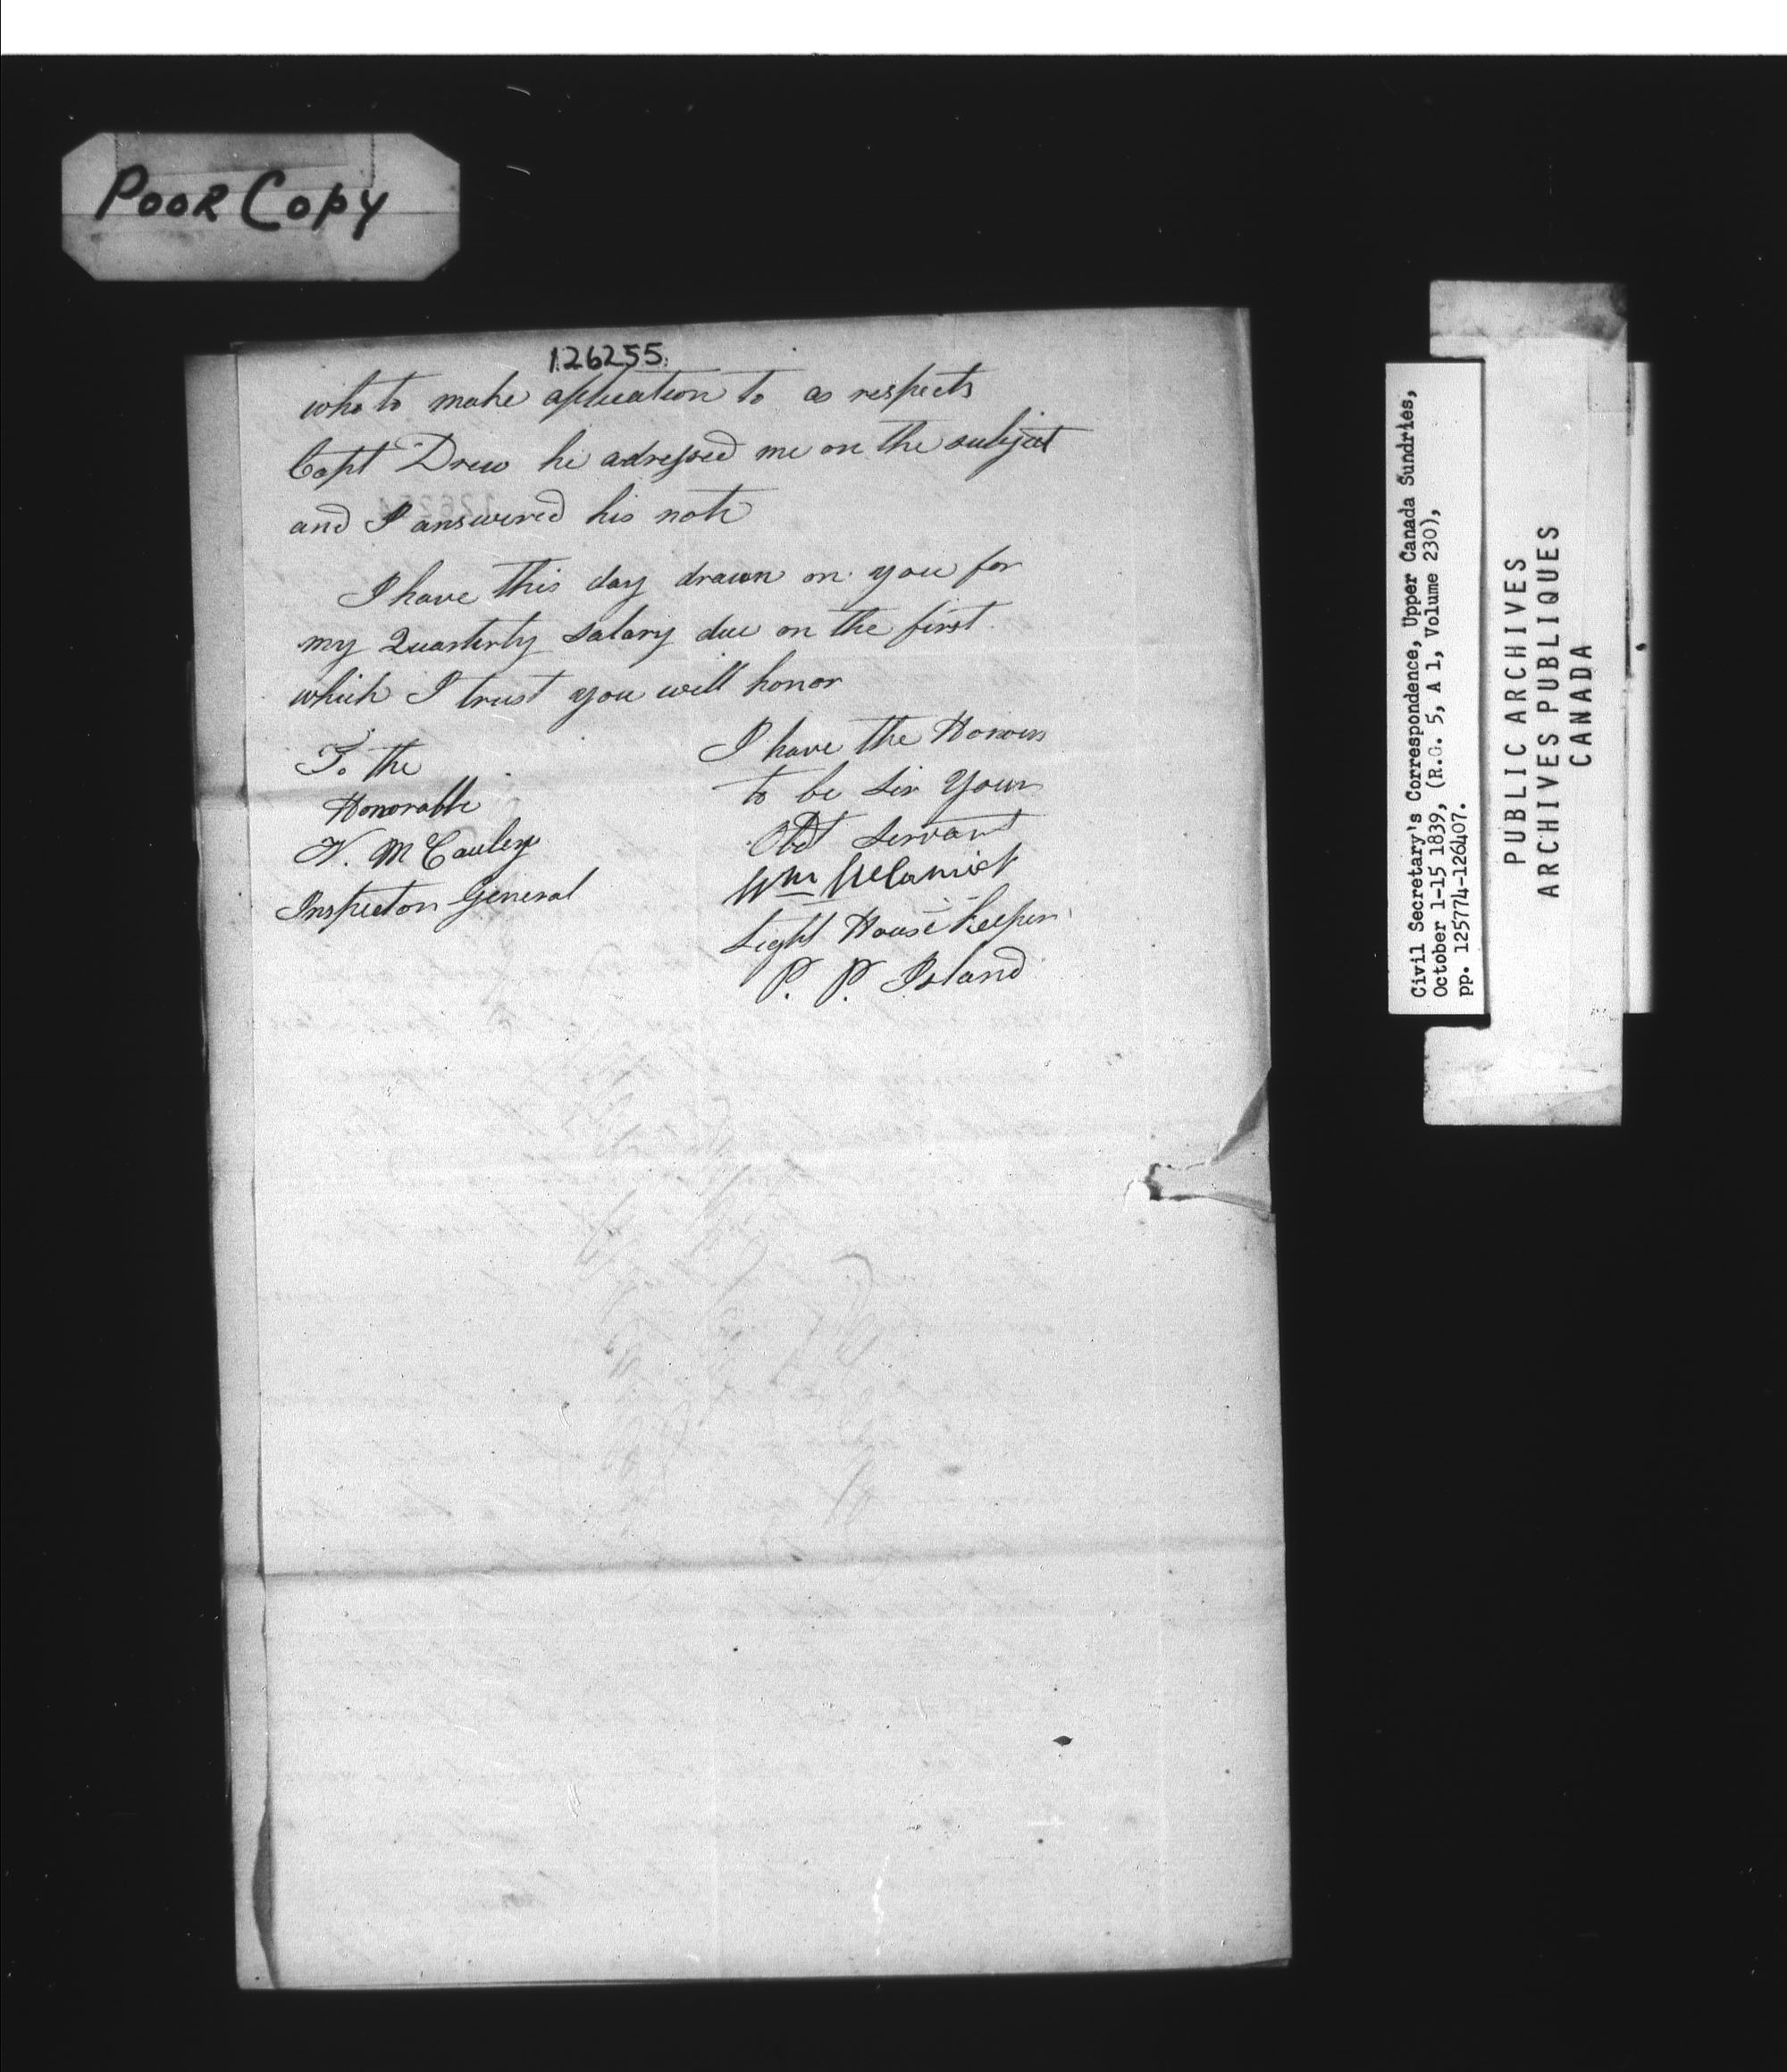 POOR COPY
126255
who to make application to as respects
Capt Drew he adressed me on the subject
and I answered his note
I have this day drawn on you for
my Quarterly Salary due on the first
which I trust you will honor
I have the Honour
to be Sir Your
Obdt Servant
Wm McCormick
Light House Keeper
P. P. Island
To the
Honorable
McCauley
Inspector General
Civil Secretary's Correspondence, Upper Canada Sundries,
October 1-15 1839, (R.G. 5, A 1, Volume 230),
pp. 125774-126407.
PUBLIC ARCHIVES
ARCHIVES PUBLIQUES
CANADA